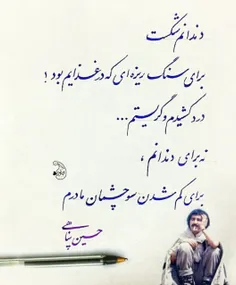 دندانم شکست
برای سنگ ریزه ای که در غذایم بود !
درد کشیدم و گریستم...
نه برای دندانم ،
برای کم شدن سو چشمان مادرم
حسین پناهی